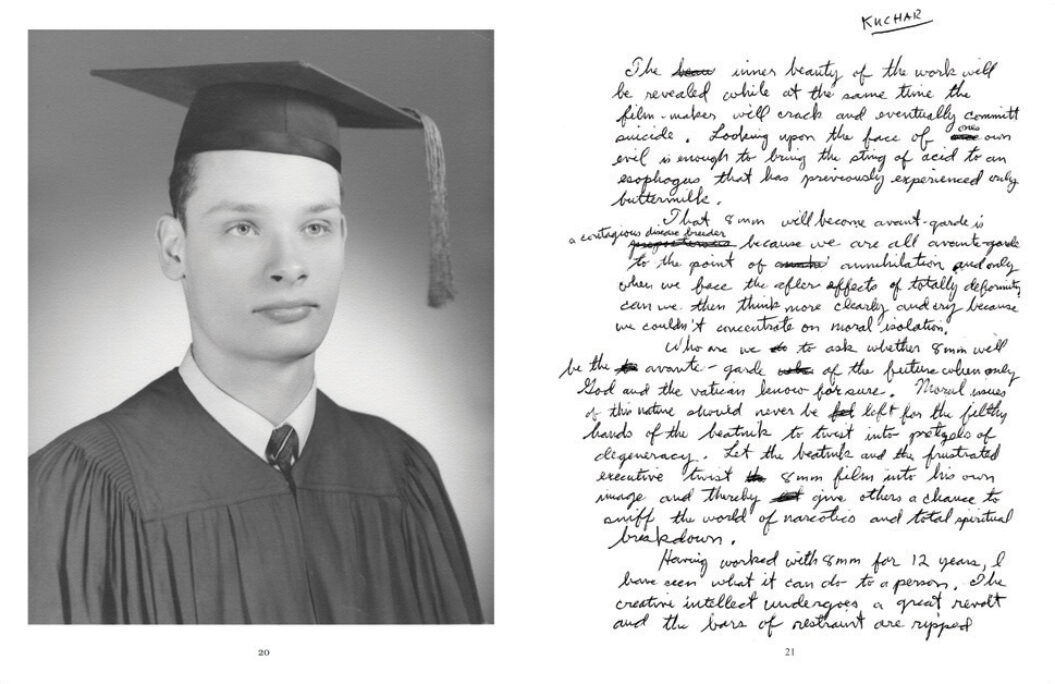 KUCHAR
The inner beauty of the work will
be revealed while at the same time the
film-makers will crack and eventually committ
suicide. Looking upon the face of ones own
evil is enough to bring the sting of acid to an
esophagus that has previously experienced only
buttermilk.
That 8mm will become avant-garde is
a contagious disease breeder because we are all avante-garde
to the point of annihilation and only
when we face the after effects of totally deformity
can we then think more clearly and cry because
we couldn't concentrate on moral isolation.
Who are we to ask whether 8mm will
be the avante-garde of the future when only
God and the vatican know for sure. Moral issues
of this nature should never be left for the filthy
hands of the beatnik to twist into pretzels of
degeneracy. Let the beatnik and the frustrated
executive twist 8mm film into his own
image and thereby give others a chance to
sniff the world of narcotics and total spiritual
breakdown.
Having worked with 8mm for 12 years, I
have seen what it can do to a person. The
creative intellect undergoes a great revolt
and the bars of restraint are ripped
20
21